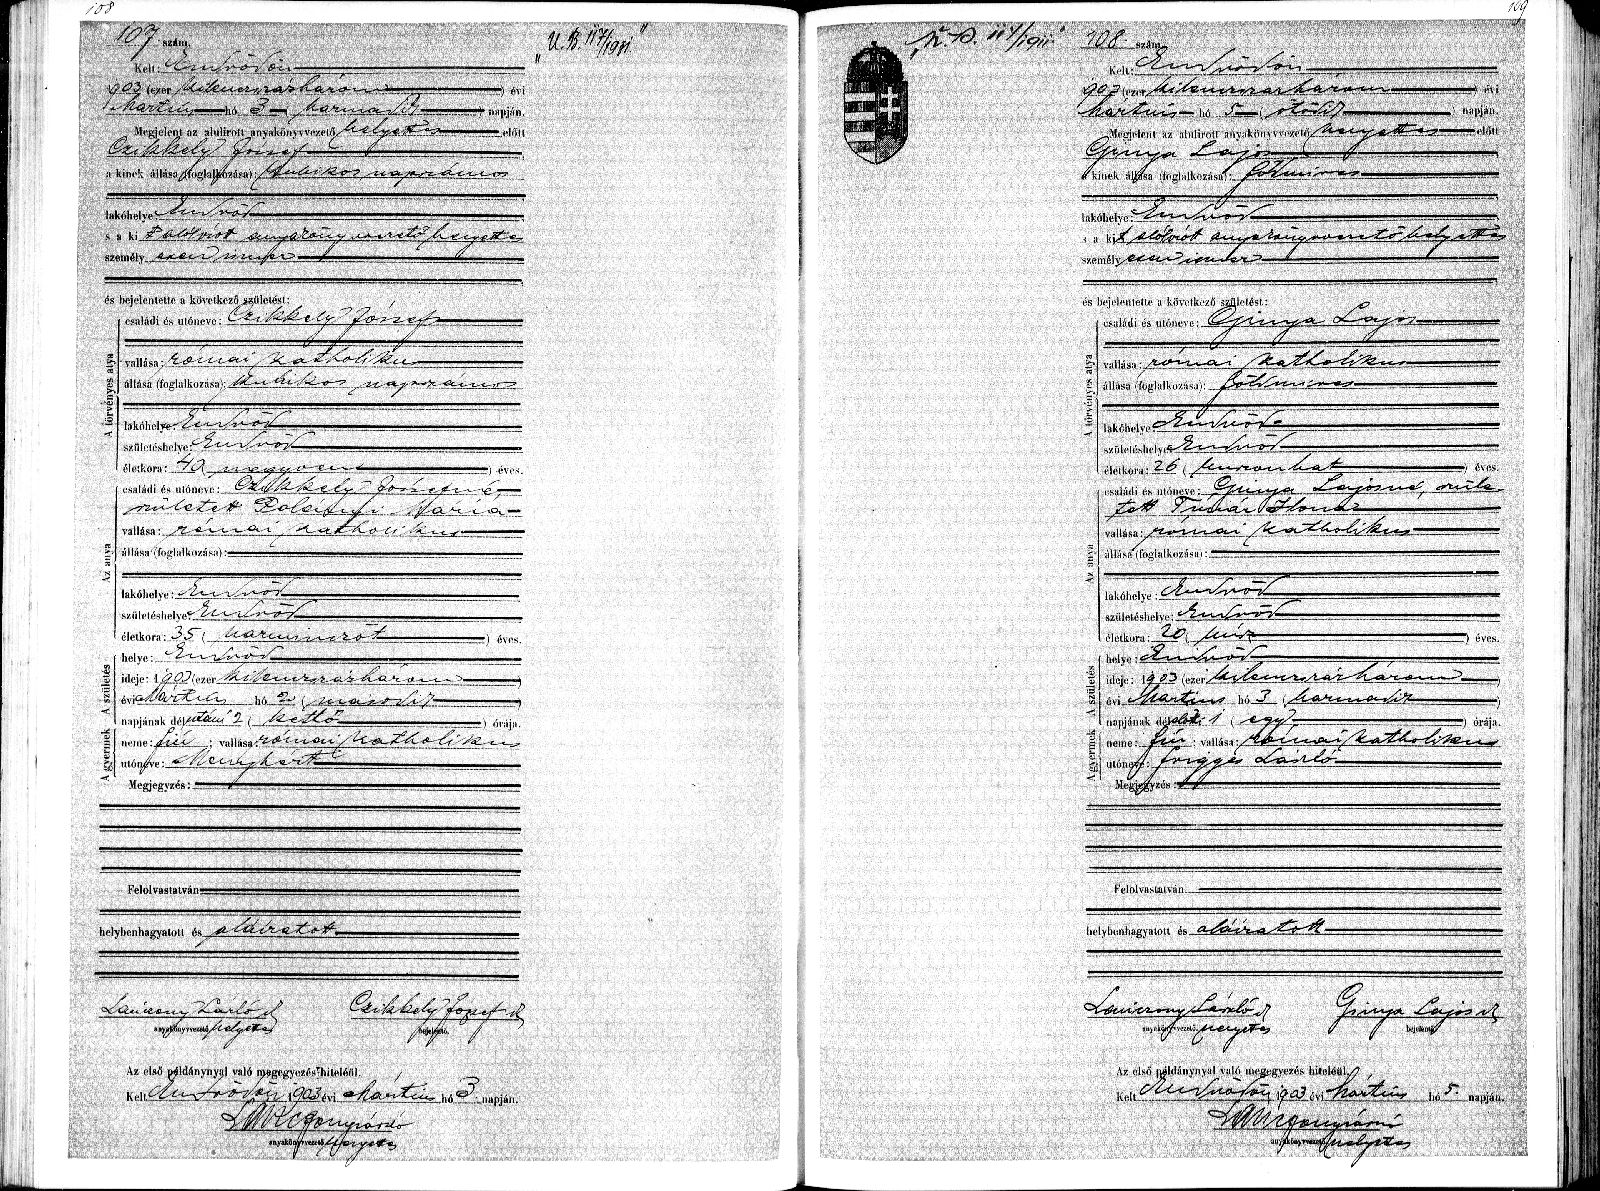 108
107 szám.
"U. B. 117/1911"
Kelt: Endrődön
1903 (ezer kilenczszázhárom) évi
Martius hó 3 (harmadik) napján.
Megjelent az alulirott anyakönyvvezető helyettes előtt
Czikkely József
a kinek állása (foglalkozása): kubikos napszámos
lakóhelye: Endrőd
s a kit alólirott anyakönyvvezető helyettes
személyesen ismer
és bejelentette a következő születést:
A törvényes atya
családi és utóneve: Czikkely József
vallása: római katholikus
állása (foglalkozása): kubikos napszámos
lakóhelye: Endrőd
születéshelye: Endrőd
életkora: 40 (negyven) éves.
Az anya
családi és utóneve: Czikkely Józsefné,
született Polányi Mária
vallása: római katholikus
állása (foglalkozása):
lakóhelye: Endrőd
születéshelye: Endrőd
életkora: 35 (harminczöt) éves.
A születés
helye: Endrőd
ideje: 1903 (ezer kilenczszázhárom)
évi Mártius hó 2 (masodik)
napjának délután 2 (kettő) órája.
A gyermek
neme: fiú; vallása: római katholikus
utóneve: Menyhért
Megjegyzés:
Felolvastatván
helybenhagyatott és aláiratott
Lanczony László Czikkely József
anyakönyvvezető helyettes bejelentő.
Az első példánynyal való megegyezés hiteléül.
Kelt Endrődön 1903 évi Mártius hó 3 napján.
Lanczony László
anyakönyvvezető helyettes
109
108 szám
Kelt: Endrődön
1903 (ezer kilenczszázhárom) évi
Martius hó 5 (ötödik) napján.
Megjelent az alulirott anyakönyvvezető helyettes előtt
Ginya Lajos
a kinek állása (foglalkozása): földmives
lakóhelye: Endrőd
s a kit alólirott anyakönyvvezető helyettes
személyesen ismer
és bejelentette a következő születést:
A törvényes atya
családi és utóneve: Ginya Lajos
vallása: római katholikus
állása (foglalkozása): földmives
lakóhelye: Endrőd
születéshelye: Endrőd
életkora: 26 (huszonhat) éves.
Az anya
családi és utóneve: Ginya Lajosné, szüle-
tett Ilona
vallása: római katholikus
állása (foglalkozása):
lakóhelye: Endrőd
születéshelye: Endrőd
életkora: 20 (húsz) éves.
A születés
helye: Endrőd
ideje: 1903 (ezer kilenczszázhárom)
évi Martius hó 3 (harmadik)
napjának délelőtti 1 (egy) órája.
A gyermek
neme: fiú; vallása: római katholikus
utóneve: Frigyes László
Megjegyzés:
Felolvastatván
helybenhagyatott és aláiratott
Lanczony László Ginya Lajos
anyakönyvvezető helyettes bejelentő
Az első példánynyal való megegyezés hiteléül.
Kelt Endrődön 1903 évi Mártius hó 5. napján.
Lanczony László
anyakönyvvezető helyettes